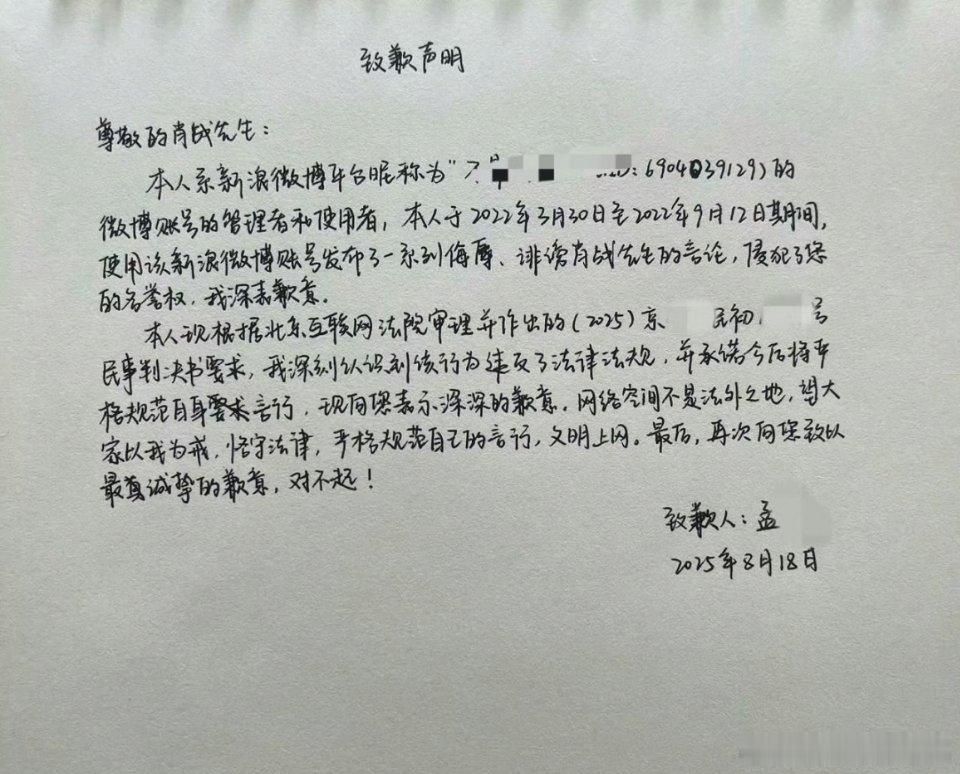 致歉声明
尊敬的肖战先生：
本人系新浪微博平台昵称为“ :6904039129)的
微博账号的管理者和使用者，本人于2022年3月30日至2022年9月12日期间，
使用该新浪微博账号发布了一系列侮辱、诽谤肖战先生的言论，侵犯了您
的名誉权，我深表歉意。
本人现根据北京互联网法院审理并作出的(2025)京 民初 号
民事判决书要求，我深刻认识到该行为违反了法律法规，并承诺今后将严
格规范自身要求言行，现向您表示深深的歉意。网络空间不是法外之地，望大
家以我为戒，恪守法律，严格规范自己的言行，文明上网。最后，再次向您致以
最真诚挚的歉意，对不起！
致歉人：孟
2025年8月18日